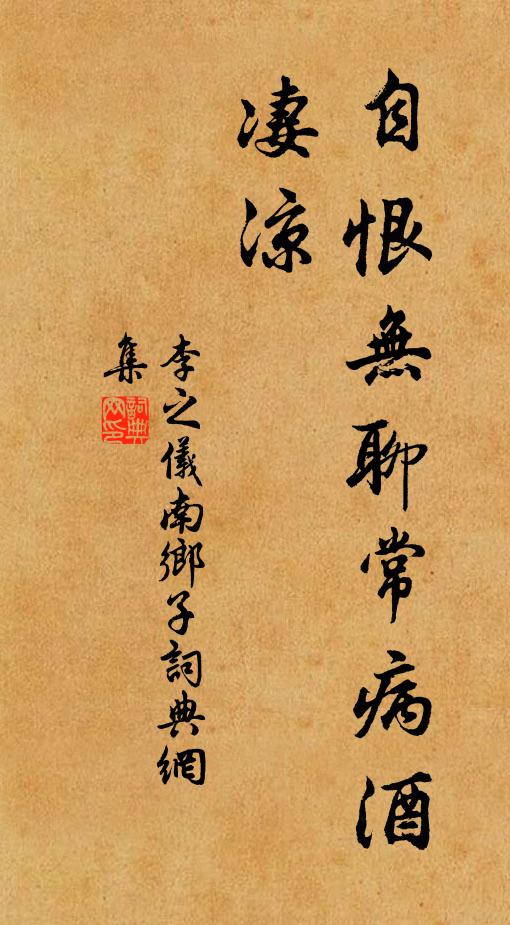 自恨無聊常病酒
凄涼
李之儀南鄉子詞典網
集
詞典網印